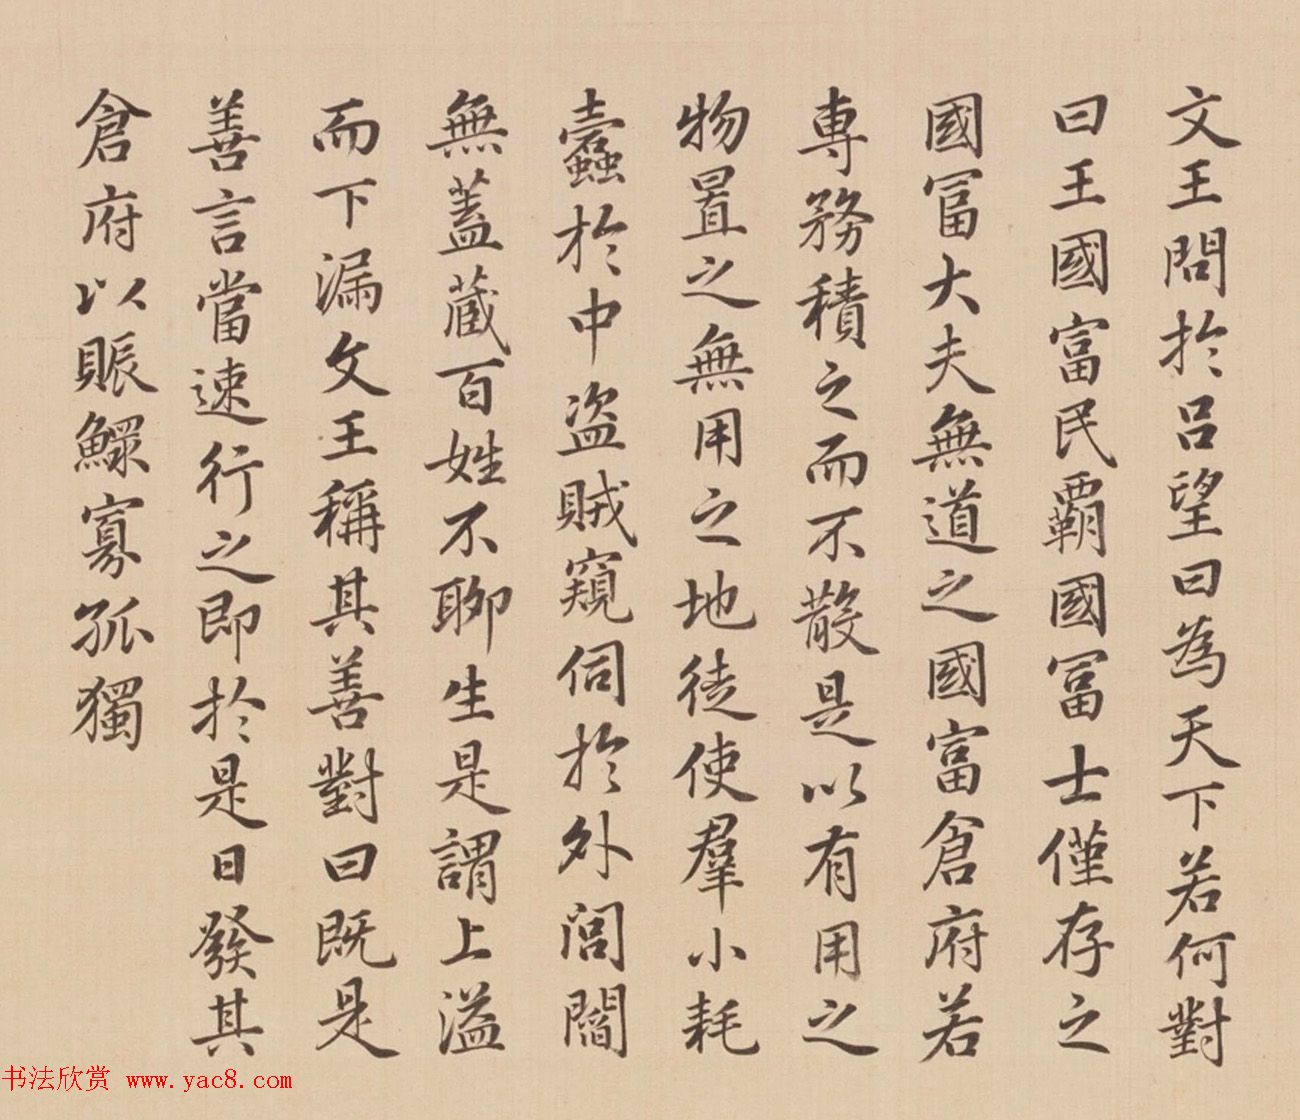 文王問於呂望曰為天下若何對
曰王國富民霸國冨士僅存之
國冨大夫無道之國富倉府若
專務積之而不散是以有用之
物置之無用之地徒使羣小耗
蠹於中盗賊窺伺於外閭閻
無蓋藏百姓不聊生是謂上溢
而下漏文王稱其善對曰既是
善言當速行之即於是日發其
倉府以賑鰥寡孤獨
书法欣赏 www.yac8.com